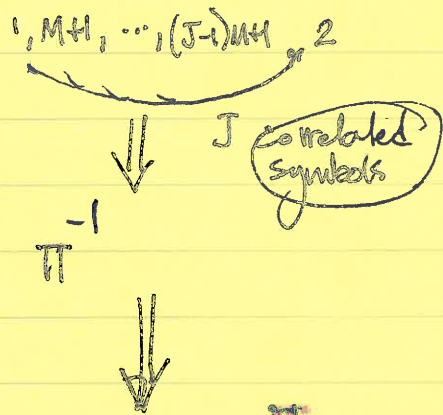 1, M+1, ..., (J-1)M+1, 2
J correlated
symbols
Π^-1